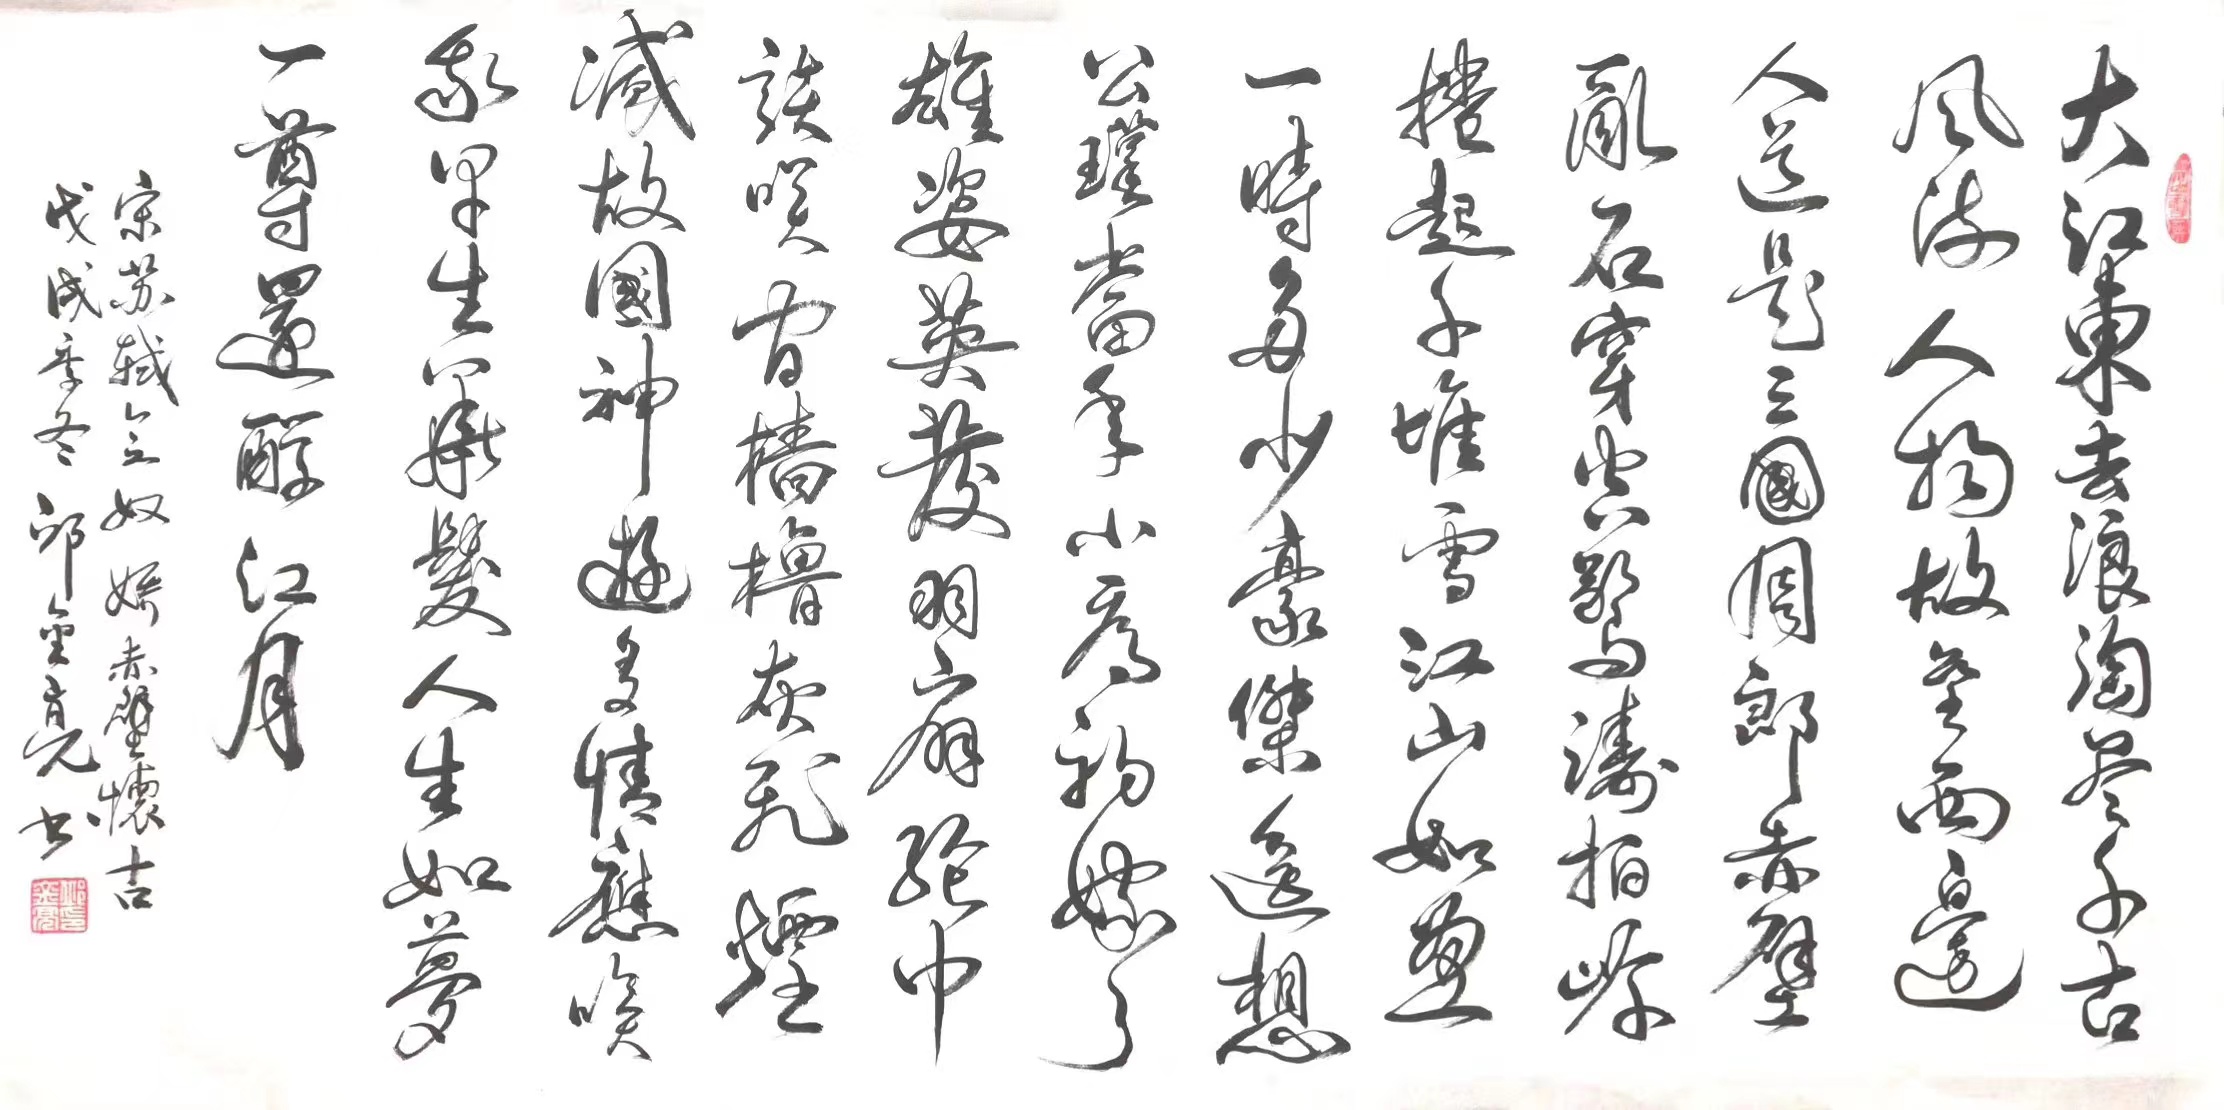 大江東去浪淘尽千古
風流人物故垒西邊
人道是三國周郎赤壁
亂石穿空驚濤拍岸
捲起千堆雪江山如畫
一時多少豪傑遙想
公瑾當年小喬初嫁了
雄姿英發羽扇綸巾
談咲間檣櫓灰飛煙
滅故國神遊多情應咲
我早生華髮人生如夢
一尊還酹江月
宋苏軾念奴嬌赤壁懷古
戊戌季冬邱金亮书